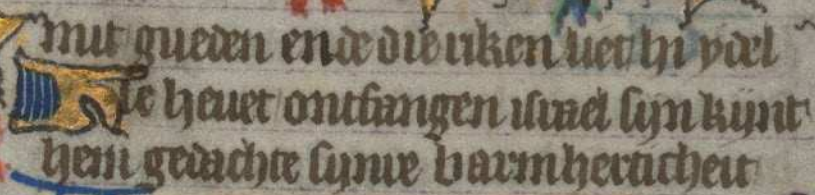 mit gueden ende die riken liet hi ydel
He heuet ontfangen israel sijn kijnt
hem gedachte synre barmherticheit